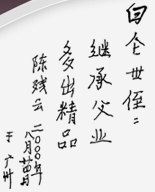 白仑世侄:
继承父业
多出精品
陈残云 二〇〇〇年
八月廿四
于广州